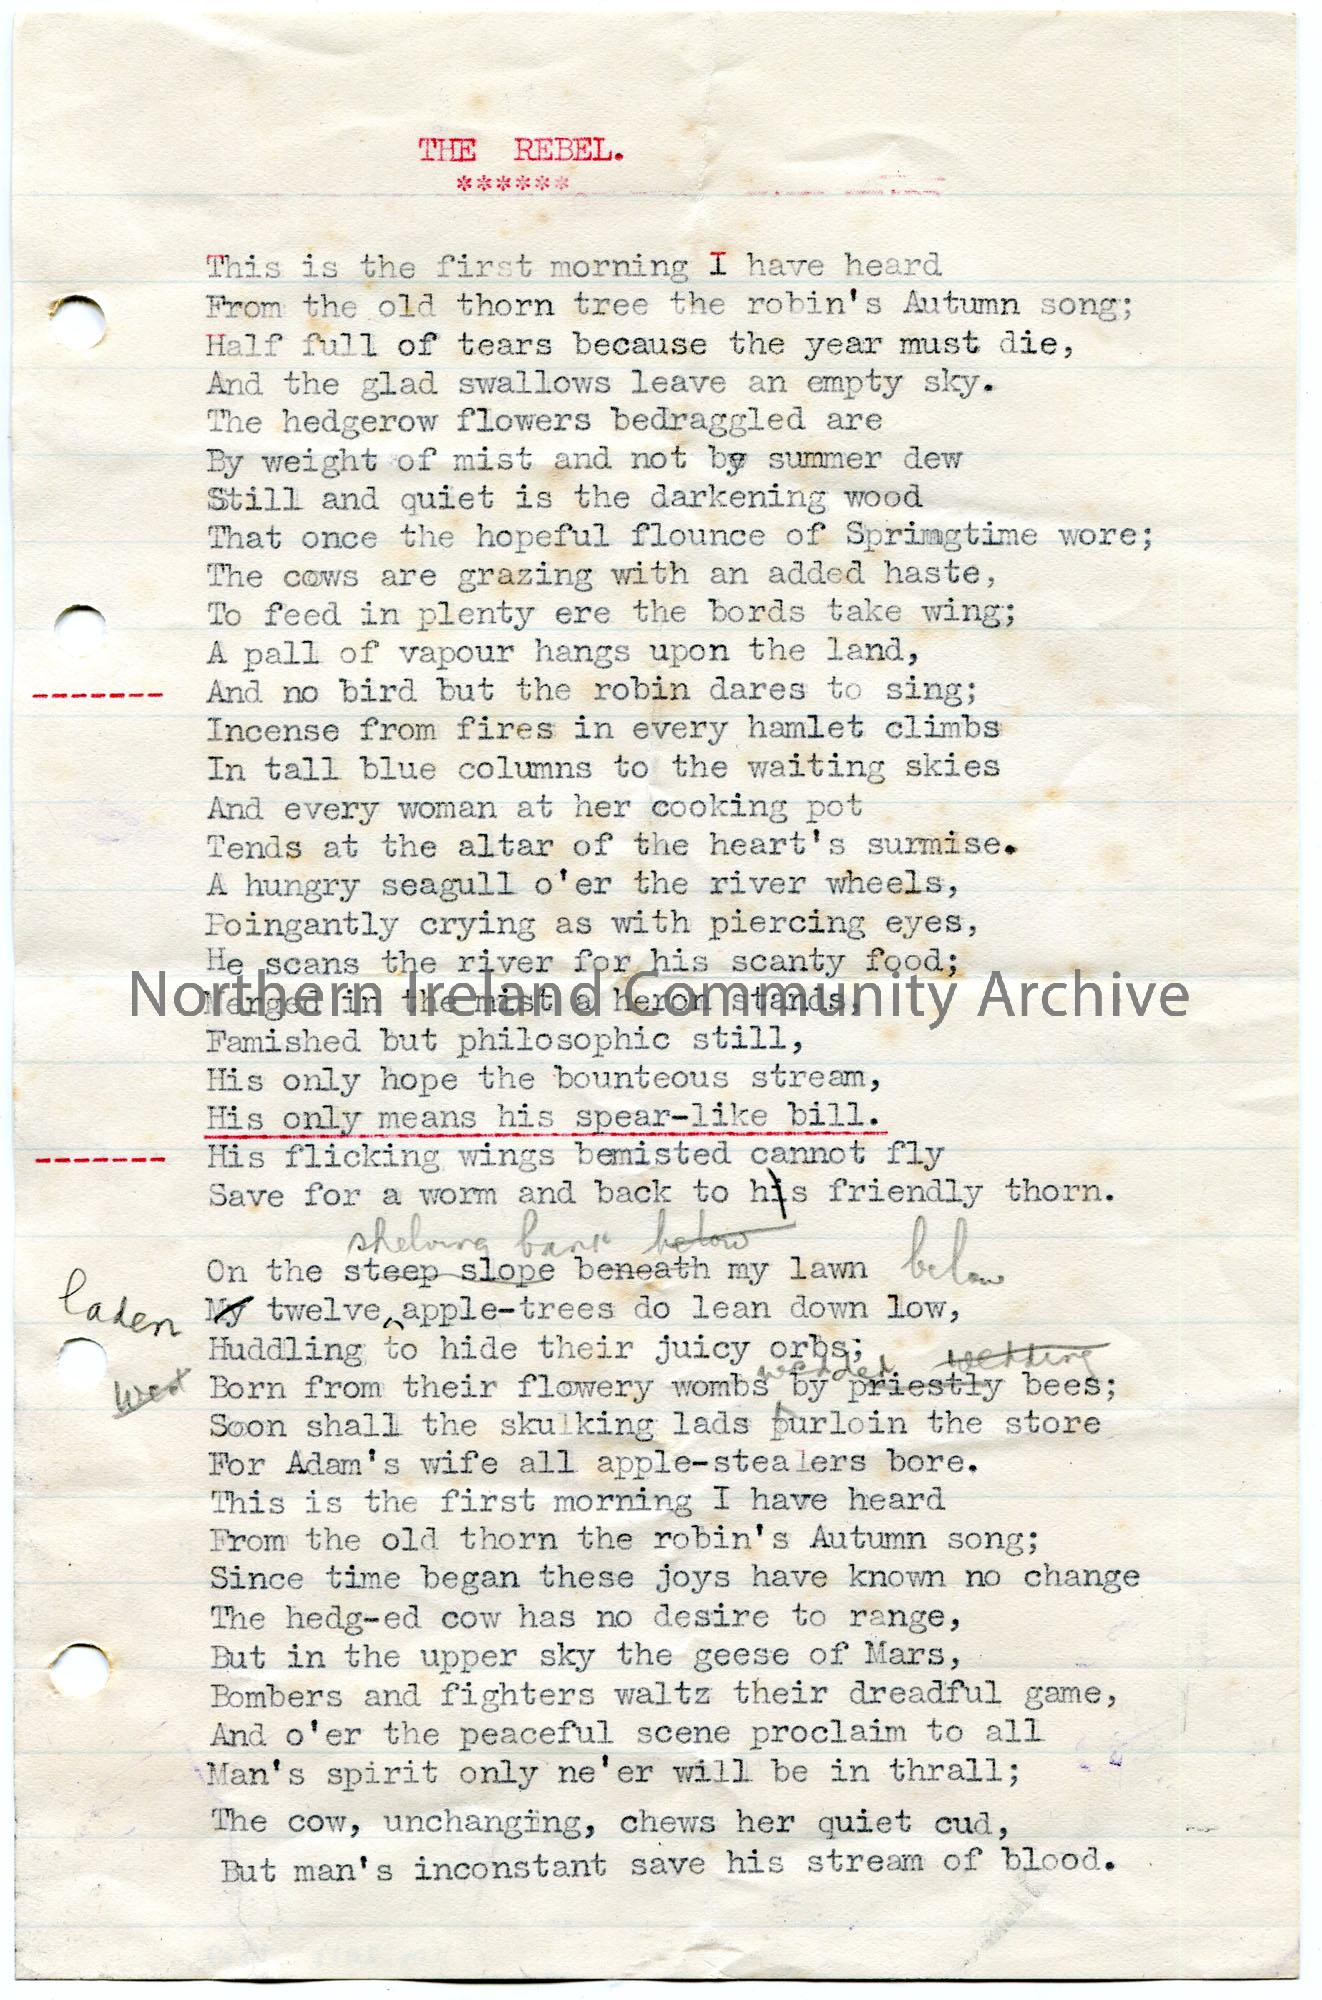 THE REBEL.
******
This is the first morning I have heard
From the old thorn tree the robin's Autumn song;
Half full of tears because the year must die,
And the glad swallows leave an empty sky.
The hedgerow flowers bedraggled are
By weight of mist and not by summer dew
Still and quiet is the darkening wood
That once the hopeful flounce of Sprimgtime wore;
The cows are grazing with an added haste,
To feed in plenty ere the bords take wing;
A pall of vapour hangs upon the land,
------- And no bird but the robin dares to sing;
Incense from fires in every hamlet climbs
In tall blue columns to the waiting skies
And every woman at her cooking pot
Tends at the altar of the heart's surmise.
A hungry seagull o'er the river wheels,
Poingantly crying as with piercing eyes,
He scans the river for his scanty food;
Northern Ireland Community Archive
Merged in the mist a heron stands,
Famished but philosophic still,
His only hope the bounteous stream,
His only means his spear-like bill.
------- His flicking wings bemisted cannot fly
Save for a worm and back to his friendly thorn.
shelving bank below
On the steep slope beneath my lawn below
laden My twelve, apple-trees do lean down low,
Huddling to hide their juicy orbs;
wedded wedding
Born from their flowery wombs by priestly bees;
Soon shall the skulking lads purloin the store
For Adam's wife all apple-stealers bore.
This is the first morning I have heard
From the old thorn the robin's Autumn song;
Since time began these joys have known no change
The hedg-ed cow has no desire to range,
But in the upper sky the geese of Mars,
Bombers and fighters waltz their dreadful game,
And o'er the peaceful scene proclaim to all
Man's spirit only ne'er will be in thrall;
The cow, unchanging, chews her quiet cud,
But man's inconstant save his stream of blood.